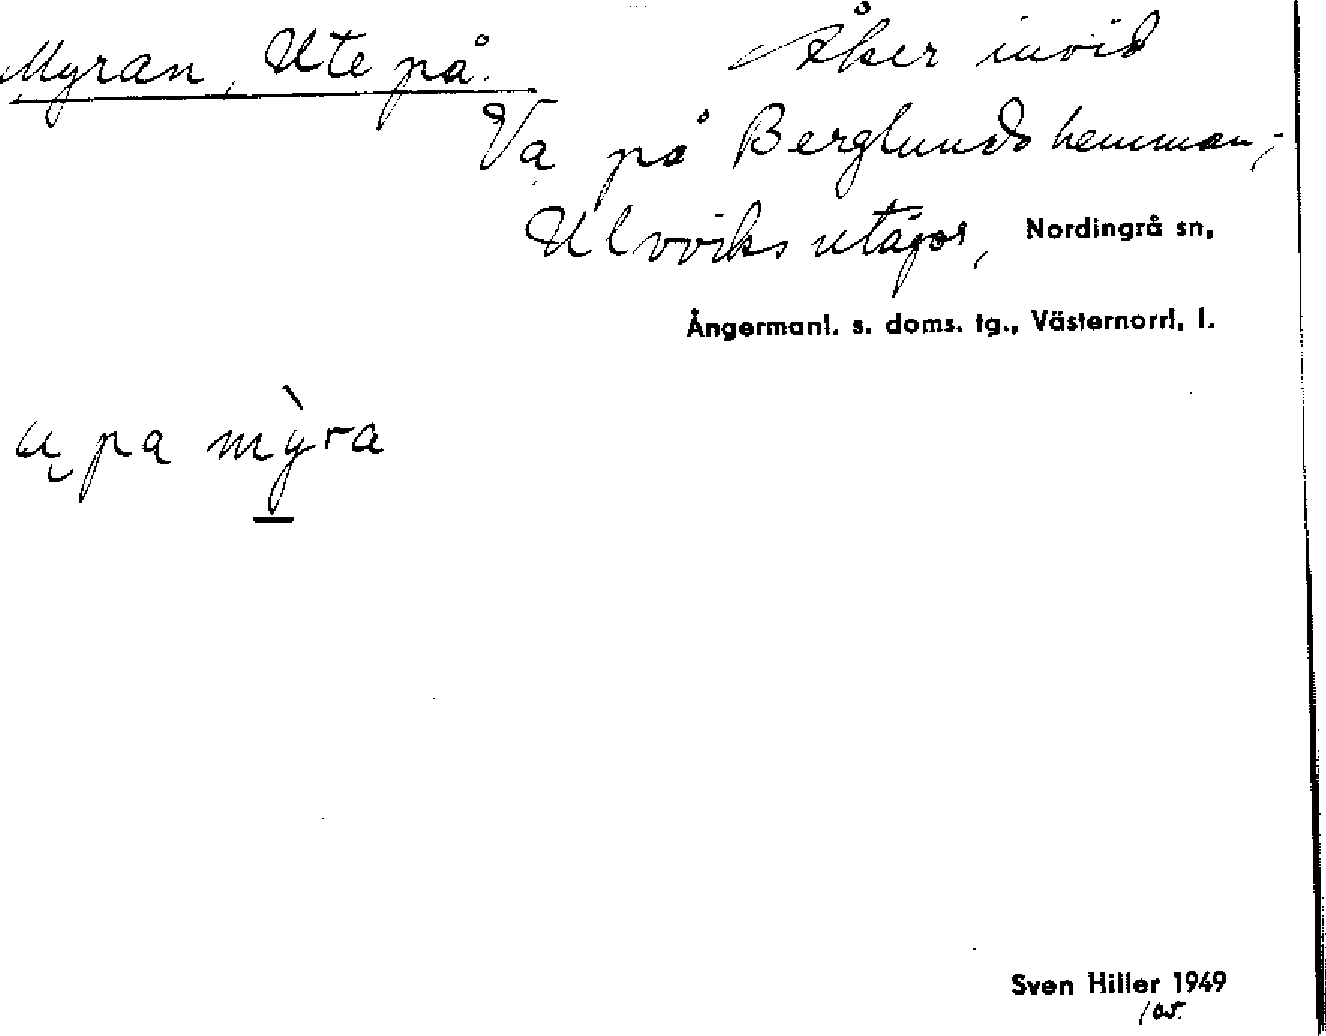 Myran, Ute på.
Åker invid
Va på Berglunds hemman,
Ulvviks utägor, Nordingrå sn,
Ångermanl. s. doms. tg., Västernorrl. l.
u pa mỳra
Sven Hiller 1949